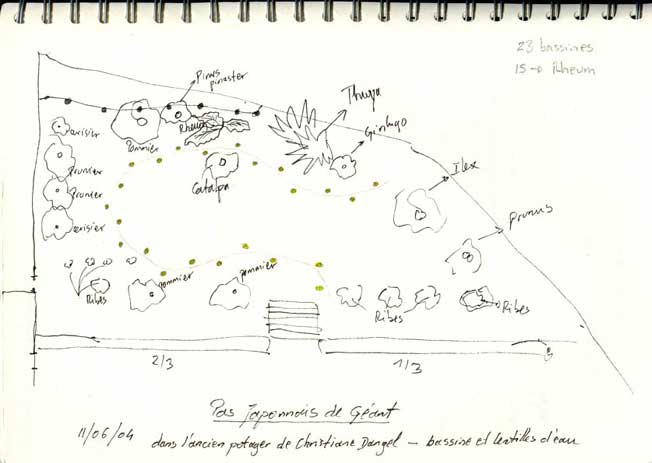 23 bassines
15 → Rheum
Pinus pinaster
Thuya
Ginkgo
Rheum
Pommier
Catalpa
Ilex
Prunus
cerisier
prunier
prunier
cerisier
Ribes
pommier
pommier
Ribes
Ribes
2/3
1/3
Pas Japonnais de Géant
11/06/04 dans l'ancien potager de Christiane Dangel – bassine et lentilles d'eau